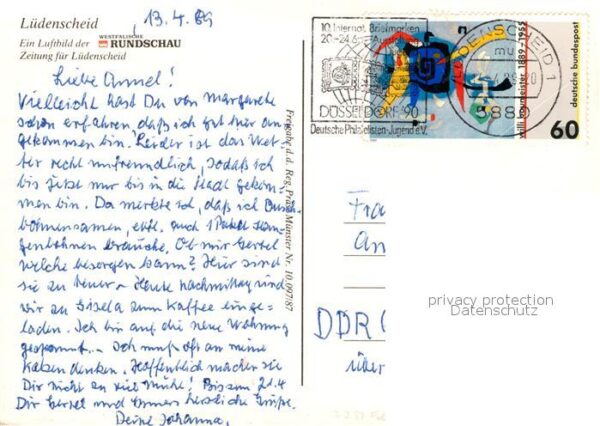 Lüdenscheid
13.4.89
Ein Luftbild der WESTFÄLISCHE RUNDSCHAU
Zeitung für Lüdenscheid
Liebe Annel!
Vielleicht hast Du von Margarete
schon erfahren daß ich gut hier an-
gekommen bin. Leider ist das Wet-
ter recht unfreundlich, sodaß ich
bis jetzt nur bis in die Stadt gekom-
men bin. Da merkte ich, daß ich Busch-
bohnensamen, evtl. auch 1 Paket Stan-
genbohnen brauche. Ob mir Gertel
welche besorgen kann? Hier sind
sie zu teuer. Heute nachmittag sind
wir zu Gisela zum Kaffee einge-
laden. Ich bin auf die neue Wohnung
gespannt. Ich muß oft an meine
Katzen denken. Hoffentlich machen sie
Dir nicht zu viel Mühe! Bis zum 21.4
Dir Gertel und herzliche Grüße.
Deine Johanna
Freigabe d.d. Reg.Präs. Münster Nr. 10.097/87
10. Internat. Briefmarken
20.-24.6.
DÜSSELDORF '90
Deutsche Philatelisten-Jugend e.V.
LÜDENSCHEID 1
5880
willi baumeister 1889-1955
deutsche bundespost
60
Fra
An
DDR
über
privacy protection
Datenschutz